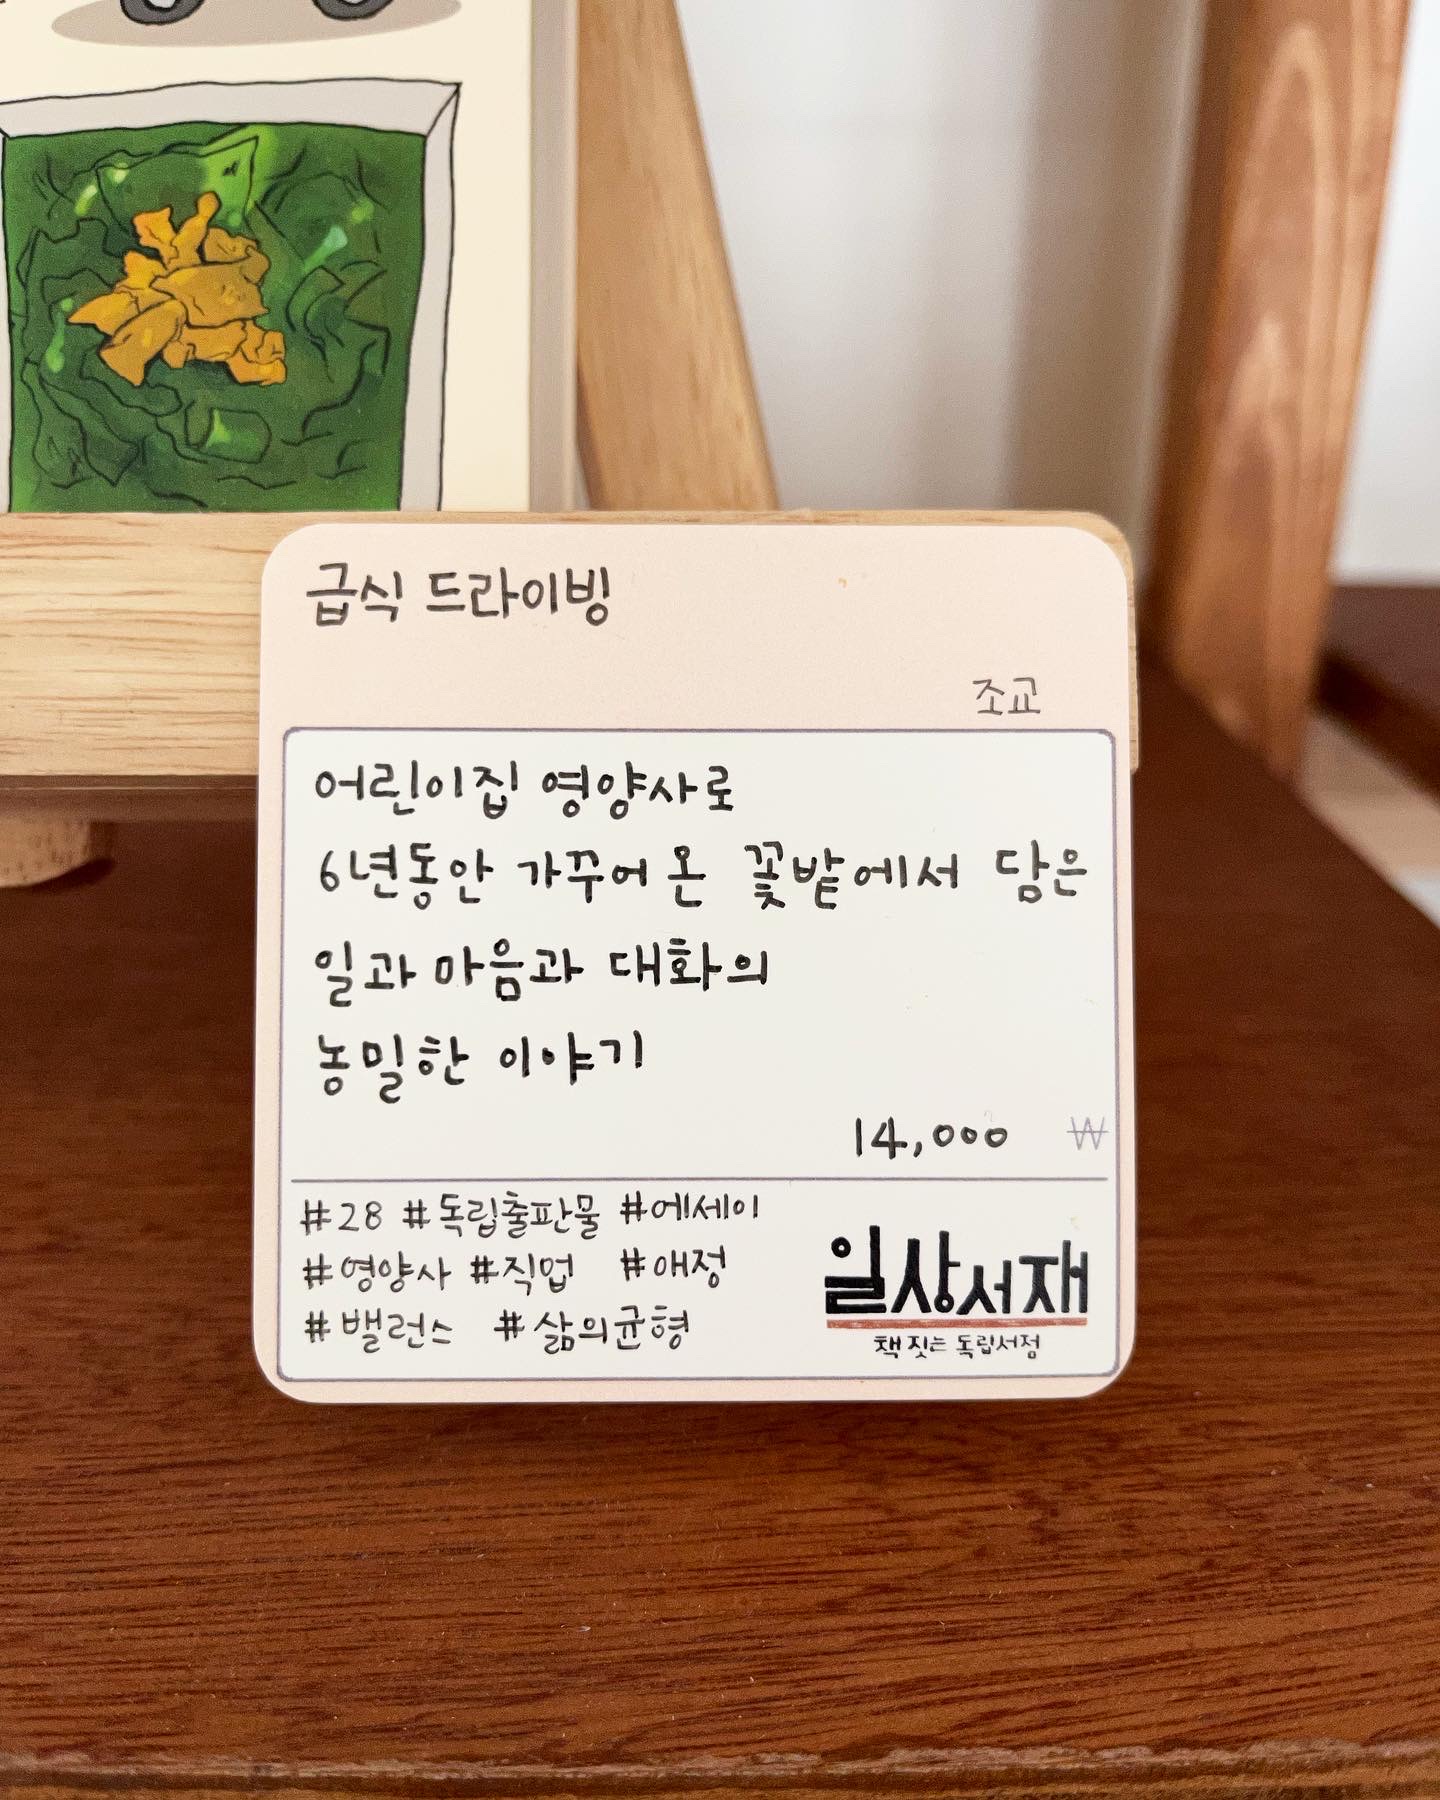 급식 드라이빙
조교
어린이집 영양사로
6년동안 가꾸어 온 꽃밭에서 담은
일과 마음과 대화의
농밀한 이야기
14,000 ₩
#28 #독립출판물 #에세이
#영양사 #직업 #애정
#밸런스 #삶의균형
일상서재
책 짓는 독립서점